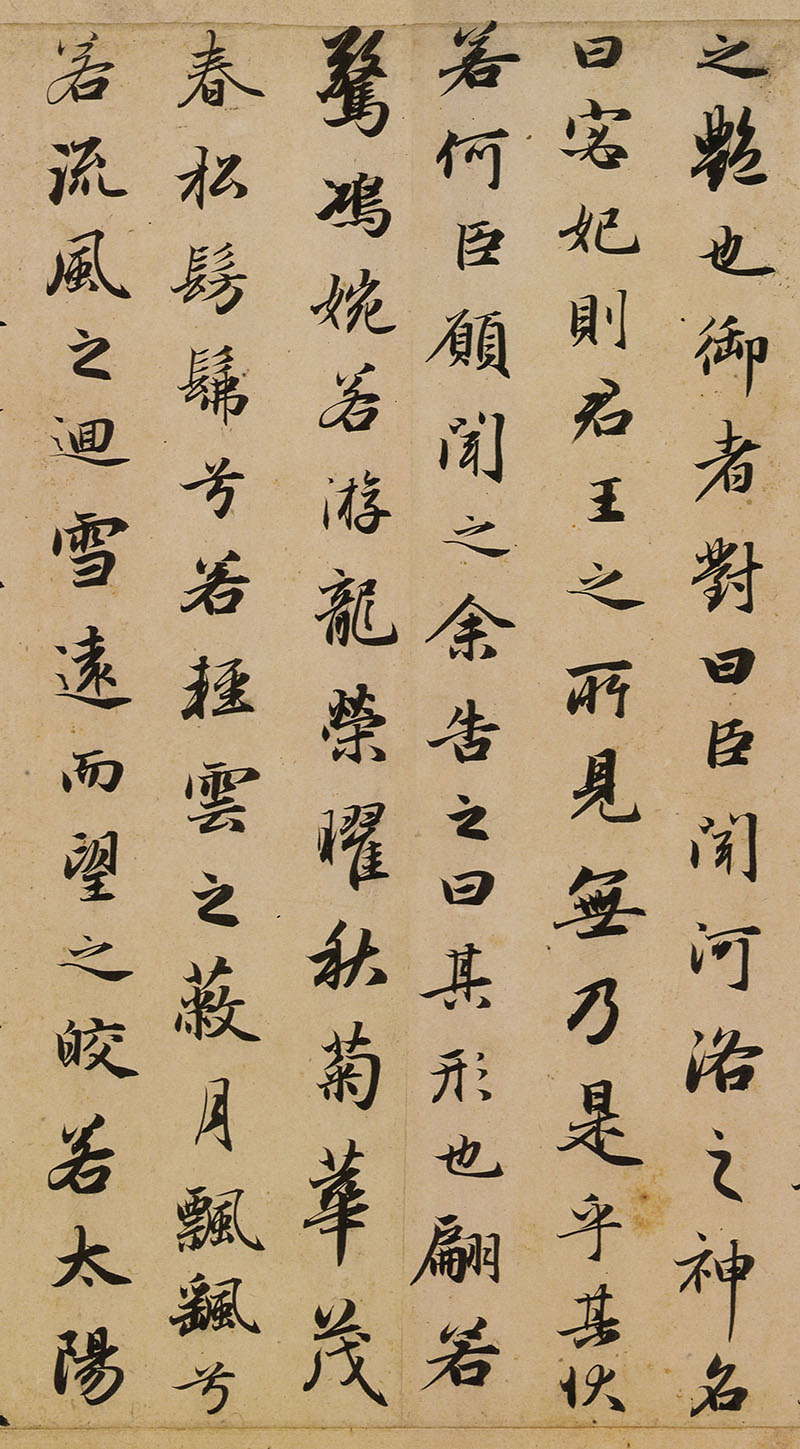 之艷也御者對曰臣聞河洛之神名
曰宓妃則君王之所見無乃是乎其狀
若何臣願聞之余告之曰其形也翩若
驚鴻婉若游龍榮曜秋菊華茂
春松髣髴兮若輕雲之蔽月飄颻兮
若流風之迴雪遠而望之皎若太陽